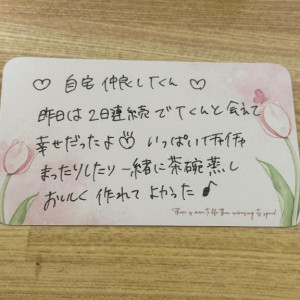 ♡ 自宅 仲良しTくん ♡
昨日は2日連続でTくんと会えて
幸せだったよ♡ いっぱいイチャイチャ
まったりしたり一緒に茶碗蒸し
おいしく作れてよかった♪